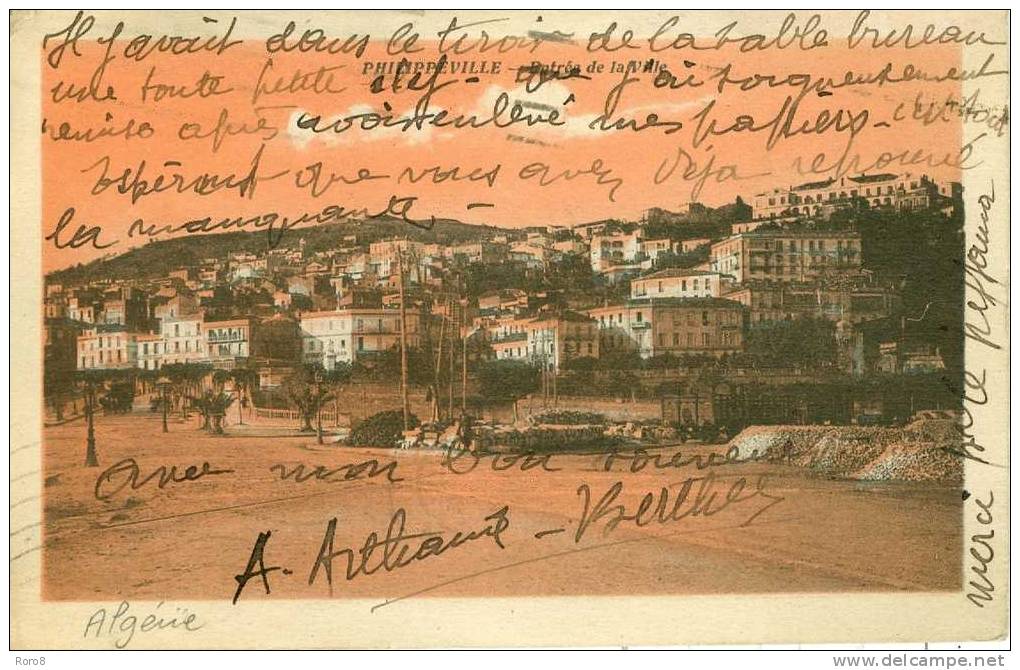 Il y avait dans le tiroir de la table bureau
PHILIPPEVILLE — Entrée de la Ville
une toute petite clef - que j'ai
remise après avoir enlevé mes papiers - c'est
Espérons que vous avez déjà retrouvé
la manquante -
Avec mon bon souvenir
A. Berthe
merci
Algérie
Roro8
www.delcampe.net